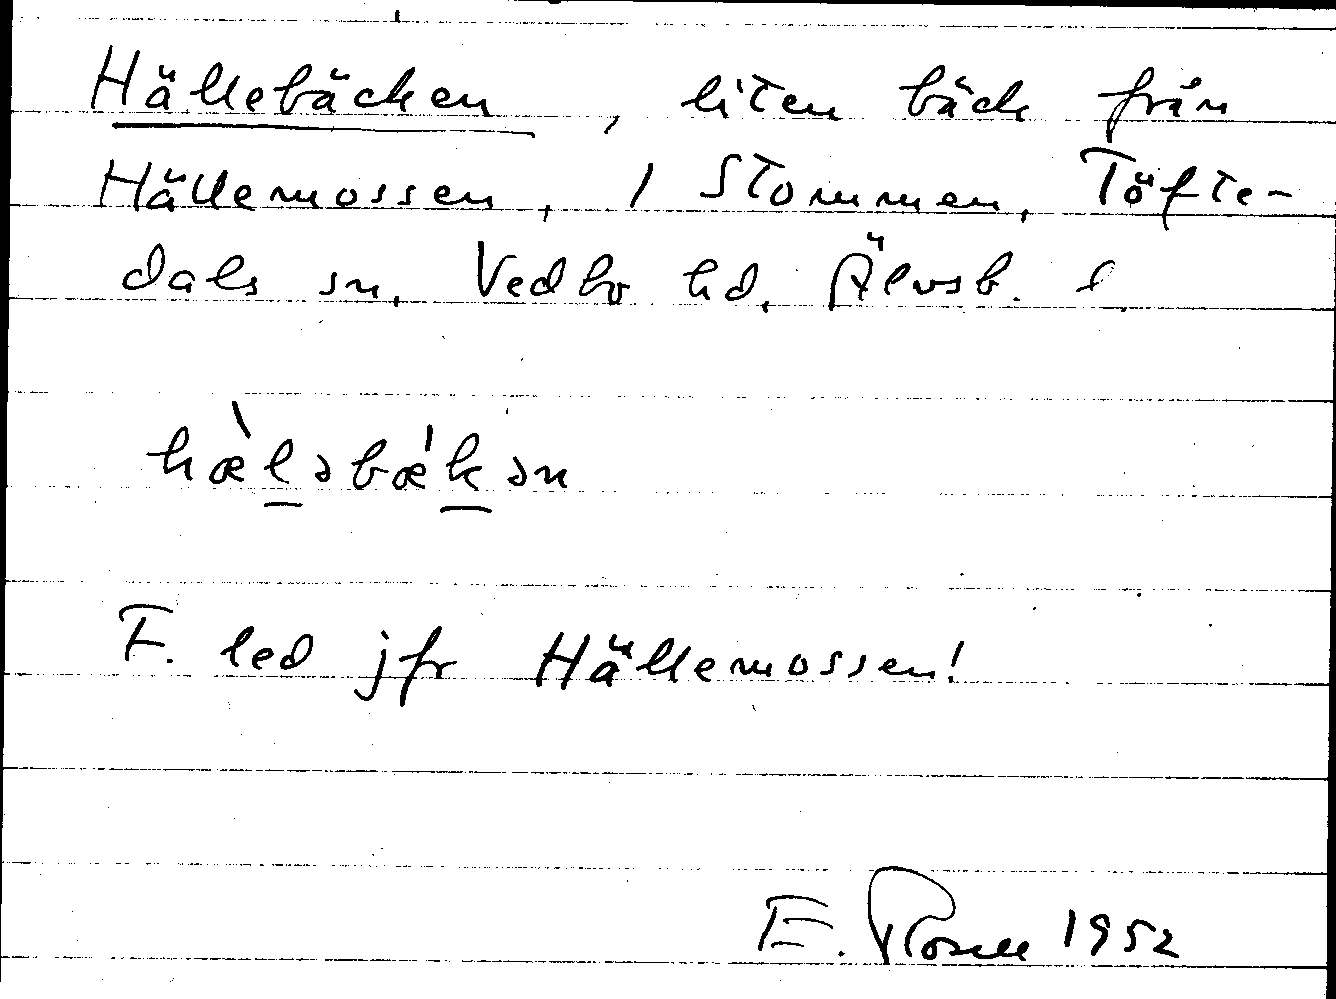 Hällebäcken, liten bäck från
Hällemossen, 1 Stommen, Töfte-
dals sn, Vedbo hd, Älvsb. l
hæ̀l̠əbæ'k̠ən
F. led jfr Hällemossen!
E. Rosell 1952